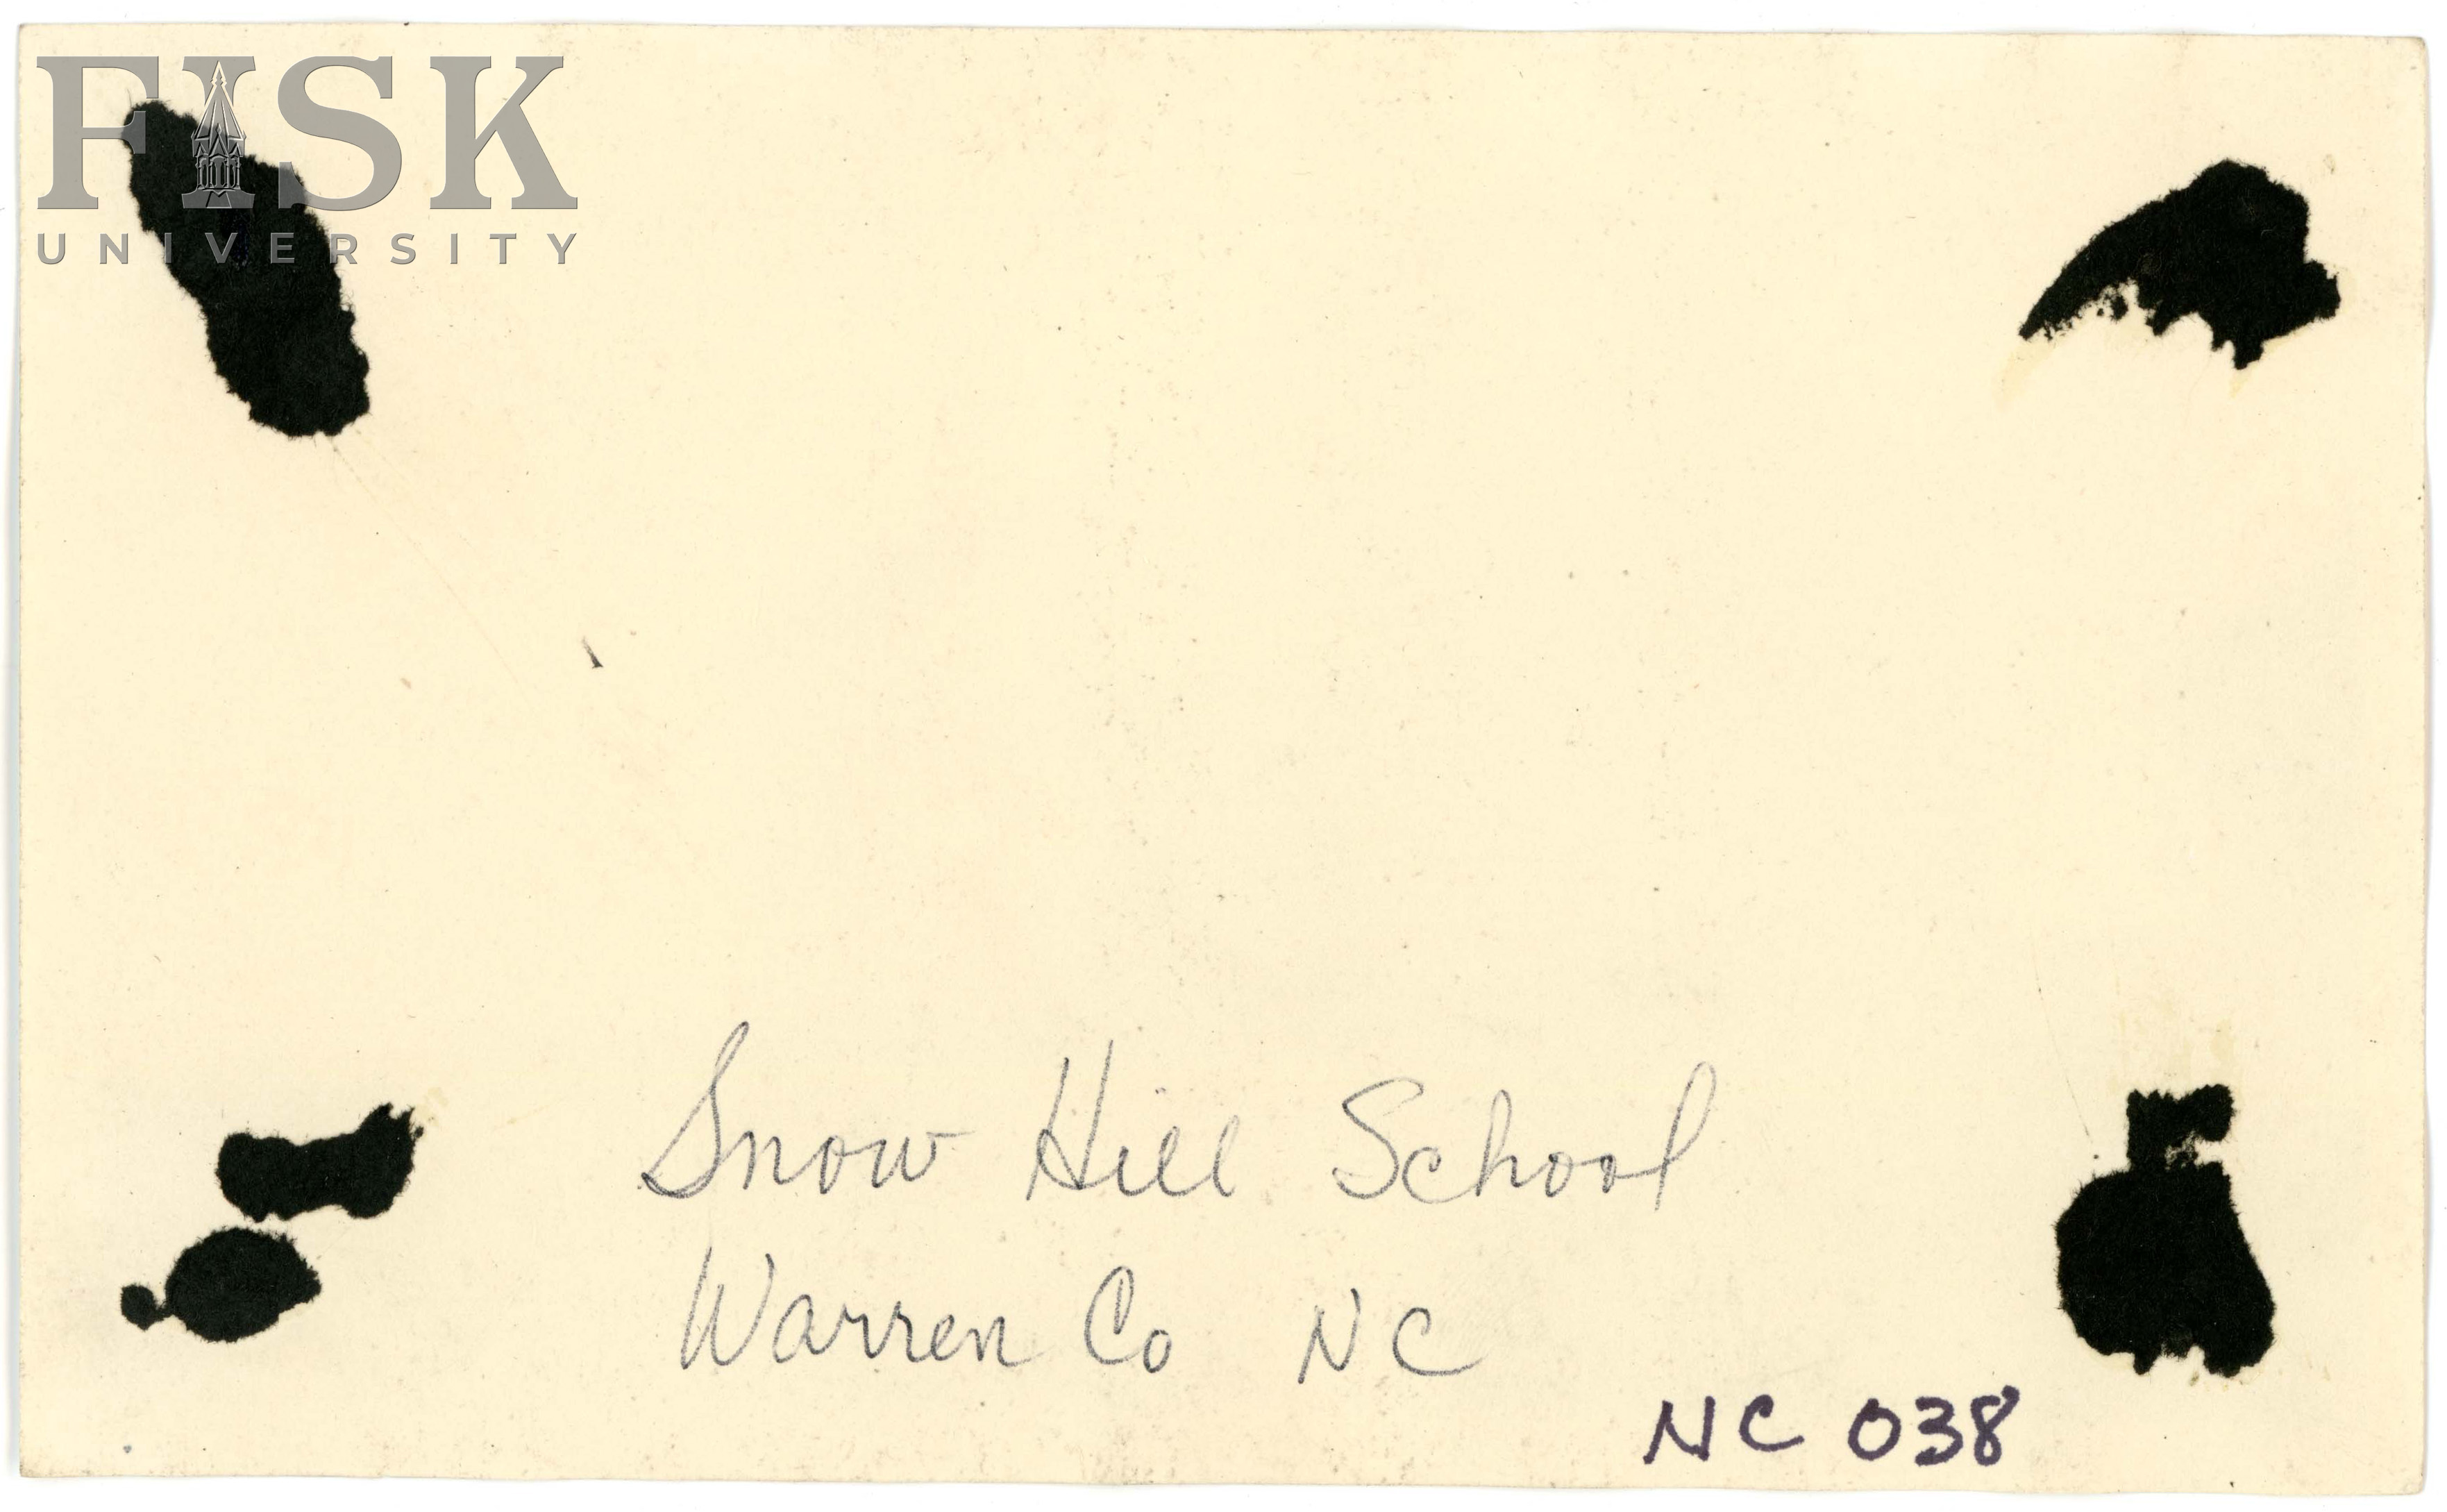 FISK
UNIVERSITY
Snow Hill School
Warren Co NC
NC 038